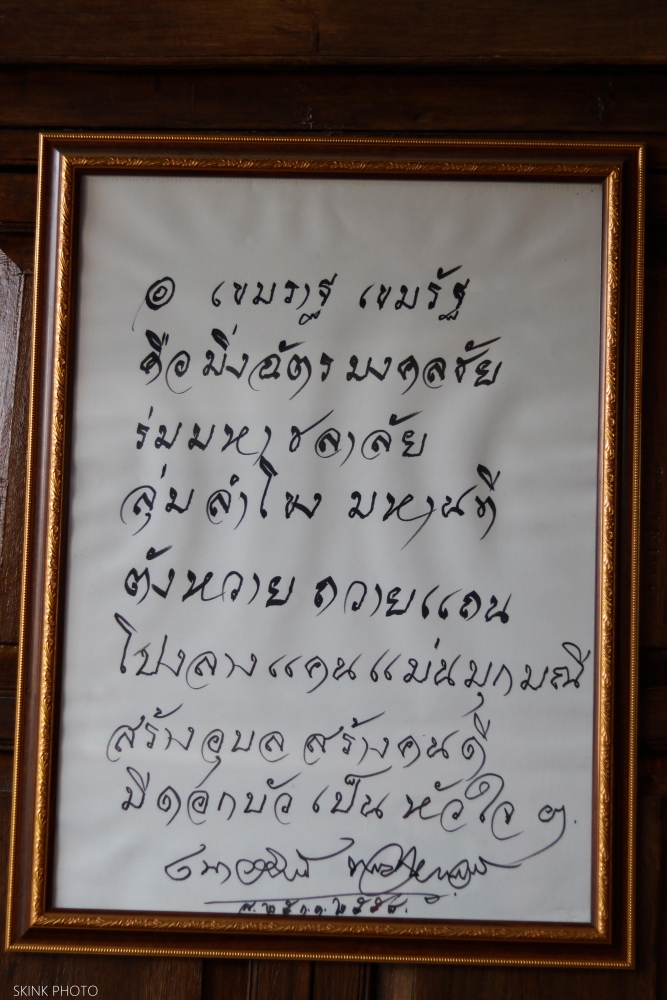 ๏ เขมราฐ เขมรัฐ
คือมิ่งฉัตร มงคลชัย
ร่มมหาชลาลัย
ลุ่มลำโขง มหานที
ตังหวาย ถวายแถน
โปงลางแคนแม่นมุกมณี
สร้างอุบล สร้างคนดี
มีดอกบัว เป็น หัวใจ ๚
เนาวรัตน์ พงษ์ไพบูลย์
SKINK PHOTO